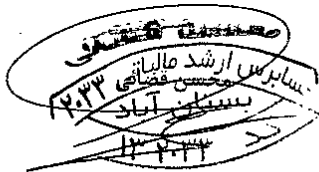 حسابرس ارشد مالیاتی
محسن قضائی
۱۲۰۳۳
بستان آباد
کد
۱۲۰۳۳